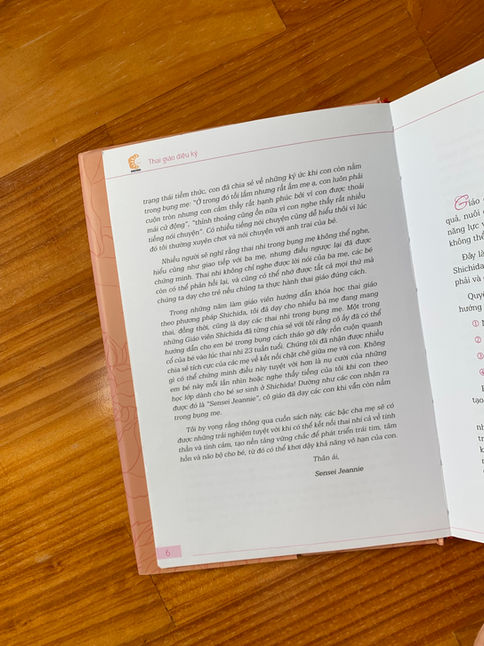 Thai giáo diệu kỳ
trạng thái tiềm thức, con đã chia sẻ về những ký ức khi con còn nằm
trong bụng mẹ: "Ở trong đó tối lắm nhưng rất ấm mẹ ạ, con luôn phải
cuộn tròn nhưng con cảm thấy rất hạnh phúc bởi vì con được thoải
mái cử động", "thỉnh thoảng cũng ồn nữa vì con nghe thấy rất nhiều
tiếng nói chuyện". Có nhiều tiếng nói chuyện cũng dễ hiểu thôi vì lúc
đó tôi thường xuyên chơi và nói chuyện với anh trai của bé.
Nhiều người sẽ nghĩ rằng thai nhi trong bụng mẹ không thể nghe,
hiểu cũng như giao tiếp với ba mẹ, nhưng điều ngược lại đã được
chứng minh. Thai nhi không chỉ nghe được lời nói của ba mẹ, các bé
còn có thể phản hồi lại, và cũng có thể nhớ được tất cả mọi thứ mà
chúng ta dạy cho trẻ nếu chúng ta thực hành thai giáo đúng cách.
Trong những năm làm giáo viên hướng dẫn khóa học thai giáo
theo phương pháp Shichida, tôi đã dạy cho nhiều bà mẹ đang mang
thai, đồng thời, cũng là dạy các thai nhi trong bụng mẹ. Một trong
những Giáo viên Shichida đã từng chia sẻ với tôi rằng cô ấy đã có thể
hướng dẫn cho em bé trong bụng cách tháo gỡ dây rốn cuộn quanh
cổ của bé vào lúc thai nhi 23 tuần tuổi. Chúng tôi đã nhận được nhiều
chia sẻ tích cực của các mẹ về kết nối chặt chẽ giữa mẹ và con. Không
gì có thể chứng minh điều này tuyệt vời hơn là nụ cười của những
em bé này mỗi lần nhìn hoặc nghe thấy tiếng của tôi khi con theo
học lớp dành cho bé sơ sinh ở Shichida! Dường như các con nhận ra
được đó là "Sensei Jeannie", cô giáo đã dạy các con khi vẫn còn nằm
trong bụng mẹ.
Tôi hy vọng rằng thông qua cuốn sách này, các bậc cha mẹ sẽ có
được những trải nghiệm tuyệt vời khi có thể kết nối thai nhi cả về tinh
thần và tình cảm, tạo nền tảng vững chắc để phát triển trái tim, tâm
hồn và não bộ cho bé, từ đó có thể khơi dậy khả năng vô hạn của con.
Thân ái,
Sensei Jeannie
6
Giáo
quả, nuôi
năng lực
không thể
Đây là
Shichida
phải và
Quyể
hướng
①
②
③
④
tạo